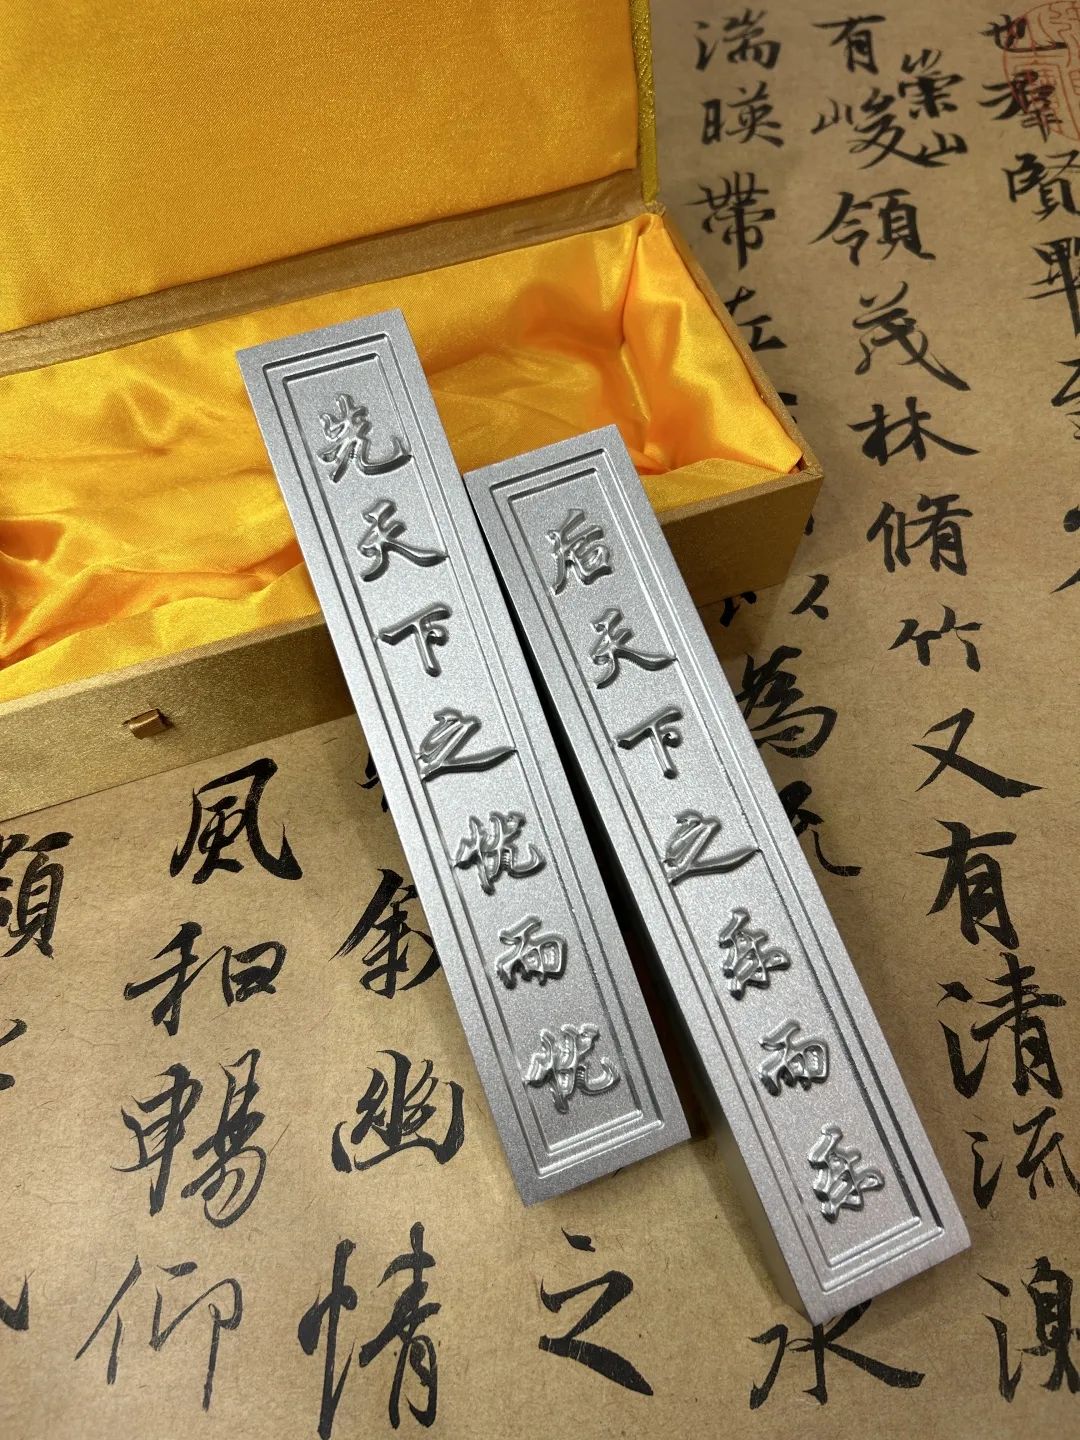 先天下之忧而忧
后天下之乐而乐
也羣賢畢至
有崇山峻領茂林脩竹又有清流激
湍暎帶左以為流水
之
敘幽情
風和暢仰
類